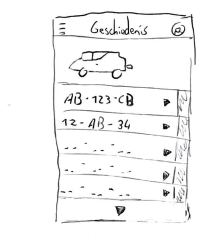 Geschiedenis
AB-123-CB
12-AB-34